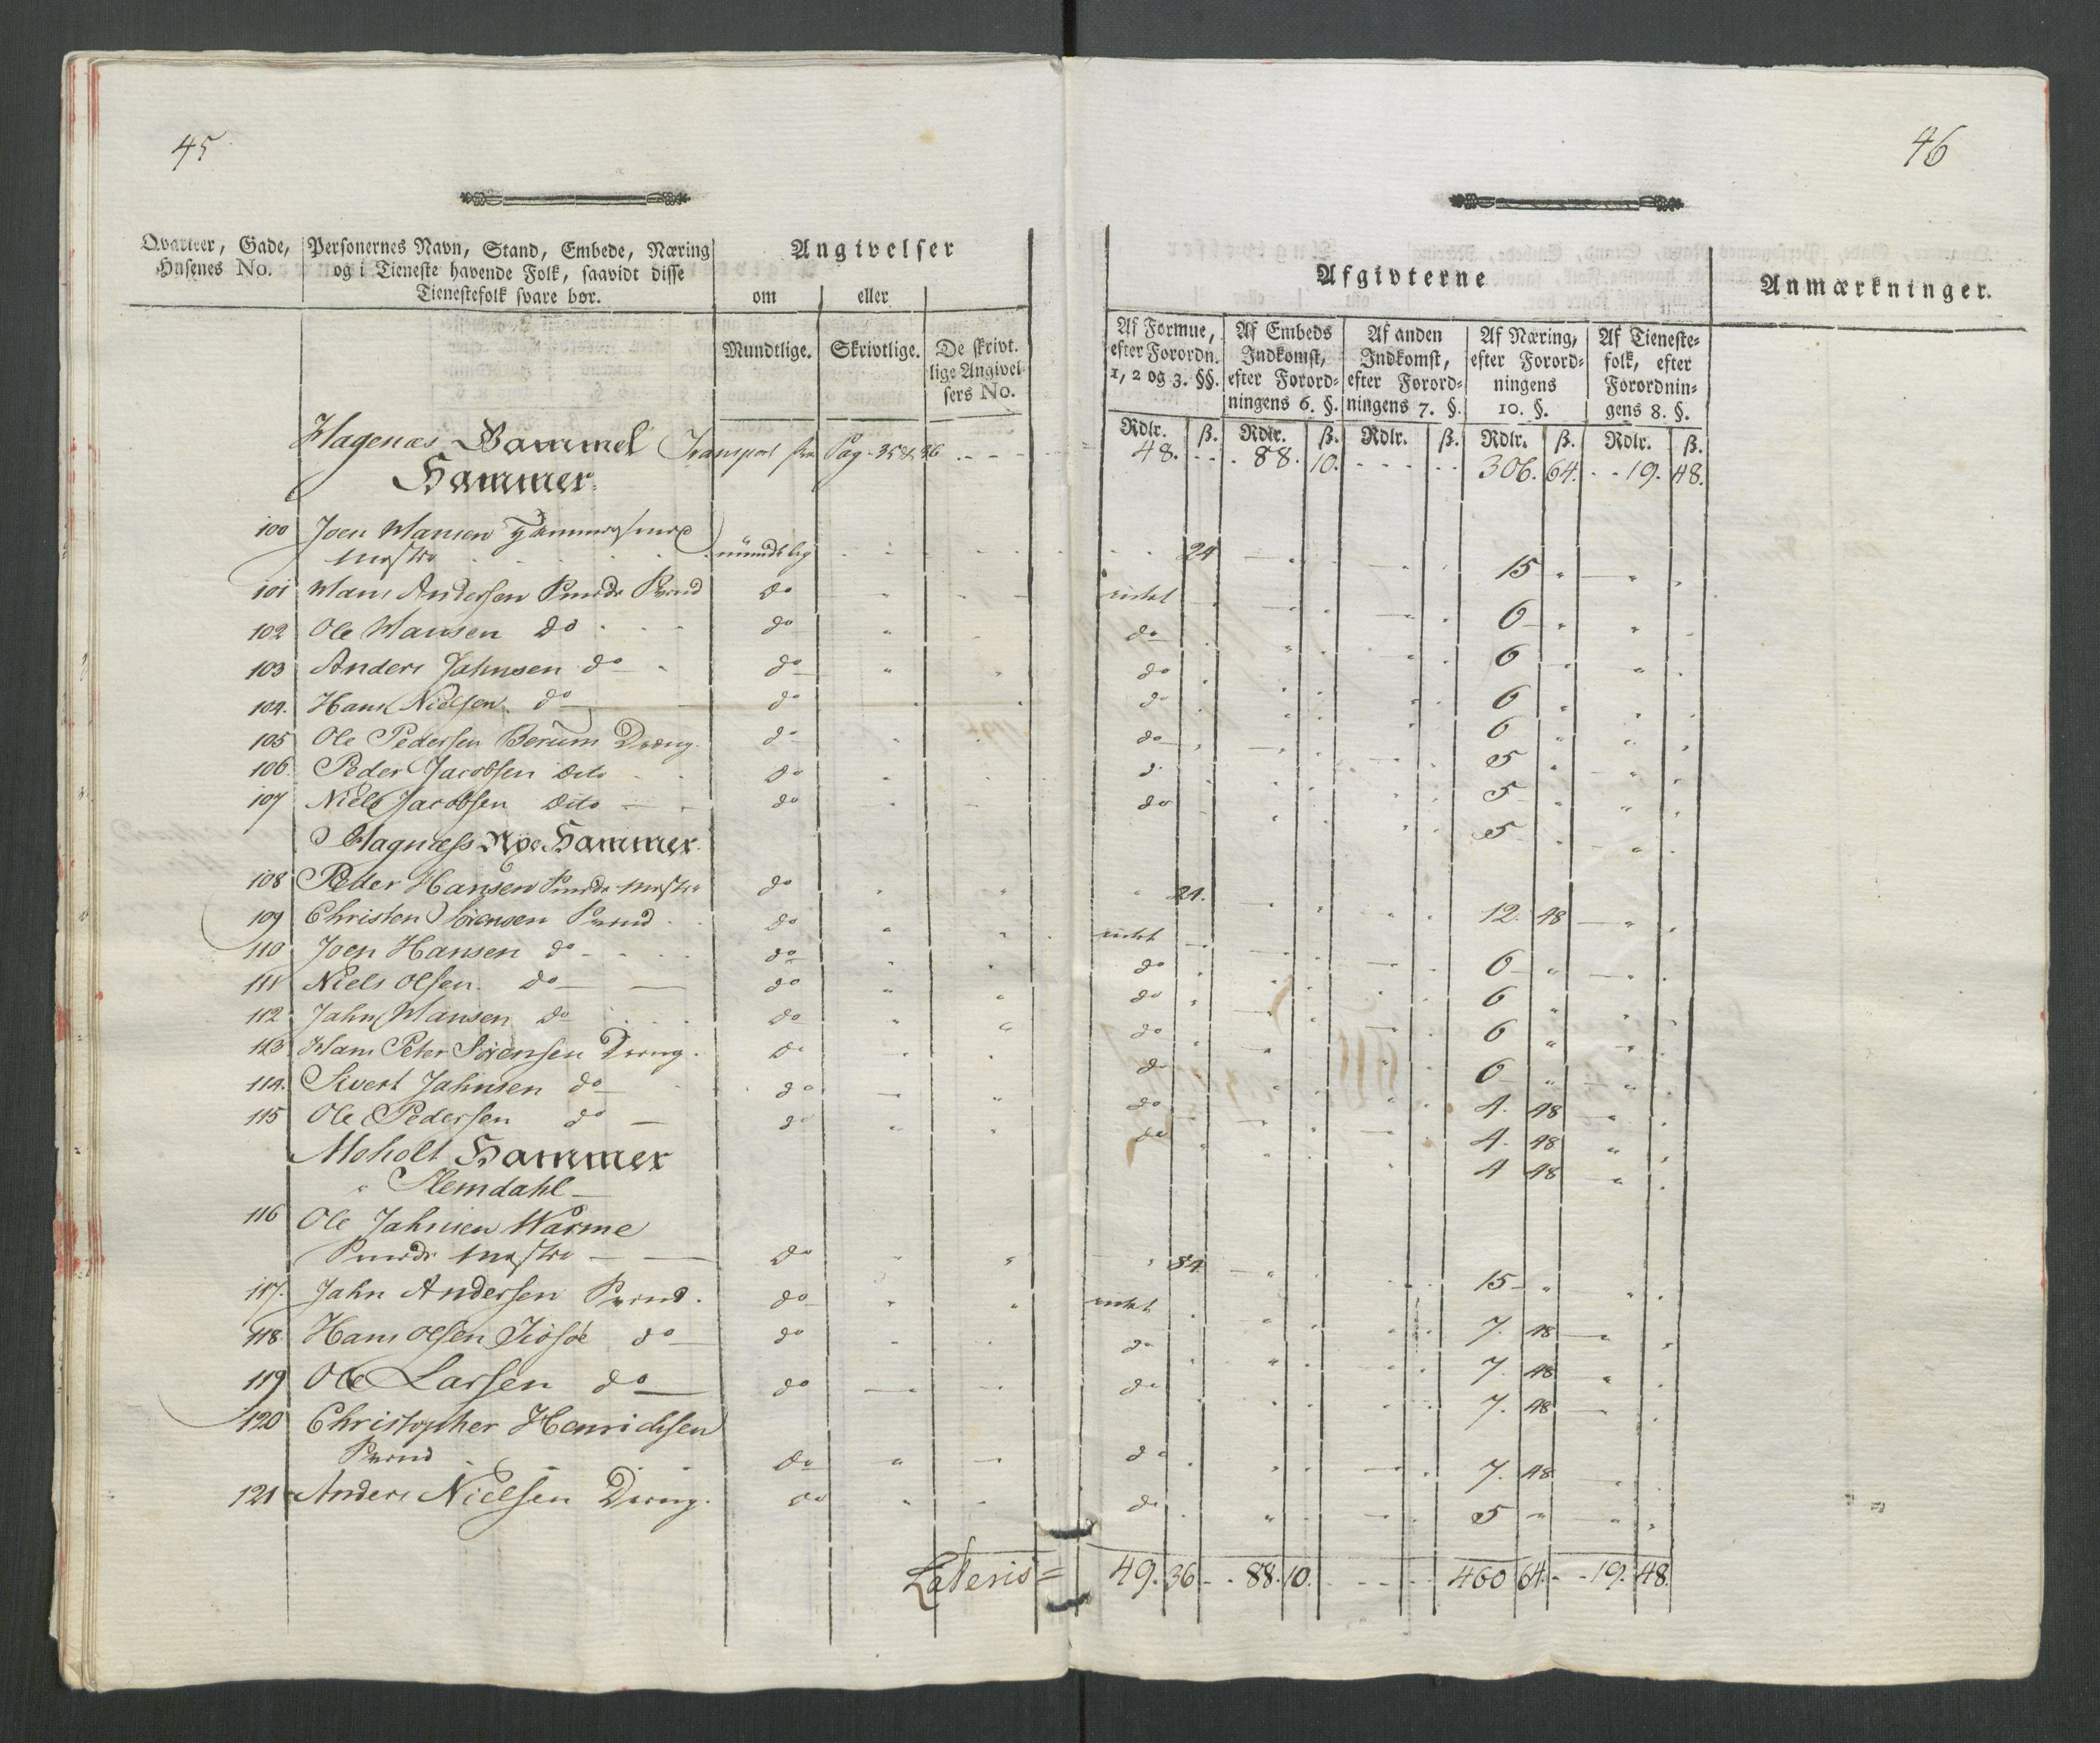 45
46
Qvarteer, Gade, Husenes No.
Personernes Navn, Stand, Embede, Næring og i Tieneste havende Folk, saavidt disse Tienestefolk svare bør.
Angivelser
om eller
Mundtlige. Skrivtlige. De skrivt. lige Angivelsers No.
Afgivterne
Anmærkninger.
Af Formue, efter Forordn. 1, 2 og 3. §§.
Af Embeds Indkomst, efter Forordningens 6. §.
Af anden Indkomst, efter Forordningens 7. §.
Af Næring, efter Forordningens 10. §.
Af Tienestefolk, efter Forordningens 8. §.
Rdlr. ß. Rdlr. ß. Rdlr. ß. Rdlr. ß. Rdlr. ß.
Hagenæs Gammel Transport fra Pag. 35 & 36 48. 88. 10. 306. 64. 19. 48.
Hammer.
100 Joen Hansen
Mester mundtlig 24 15
101 Hans Andersen Svend do 6
102 Ole Hansen do do do 6
103 Anders Jahnsen do do do 6
104. Hans Nielsen do do do 6
105 Ole Pedersen Berum Dreng do do 5
106. Peder Jacobsen dito do d 5
107 Niels Jacobsen dito do do 5
Hagnæss Nye Hammer
108 Peder Hansen Mester do 24. 12. 48
109 Christen Sørensen Svend do 6
110 Joen Hansen do do do 6
111 Niels Olsen do do do 6
112 Jahn Hansen do do do 6
113 Hans Peter Sørensen Dreng. do do 4. 48
114. Sivert Jahnsen do do do 4. 48
115 Ole Pedersen do do do 4 48
Moholt Hammer
Slemdahl
116 Ole Jahnsen Warme
Mester do 84 15
117. Jahn Andersen Svend. do 7. 48
118. Hans Olsen do do do 7. 48
119 Ole Larsen do do do 7. 48
120 Christopher Henrichsen
Svend do do 7. 48
121 Anders Nielsen Dreng. do do 5
Lateris = 49. 36 88. 10. 460 64. 19. 48.